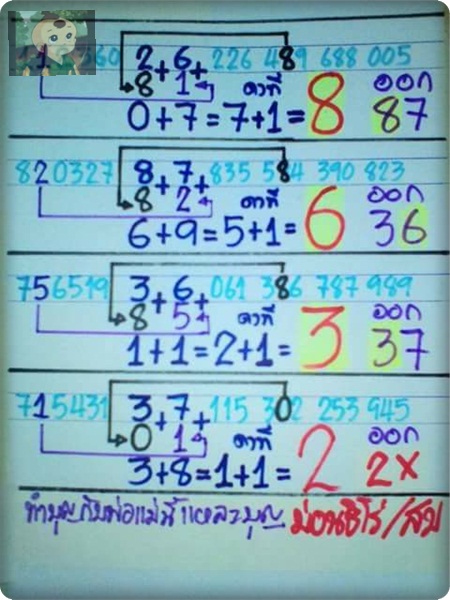 1 360 2+6+226 489 688 005
8 1 คาที่ ออก
0+7=7+1=8 87
820327 8+7+835 584 390 823
8 2 คาที่ ออก
6+9=5+1=6 36
756519 3+6+061 386 787 989
8 5 คาที่ ออก
1+1=2+1=3 37
715431 3+7+115 302 253 945
0 1 คาที่ ออก
3+8=1+1=2 2x
ทำบุญกับพ่อแม่นี่แหละบุญ ม่อนชิโร่/สบ